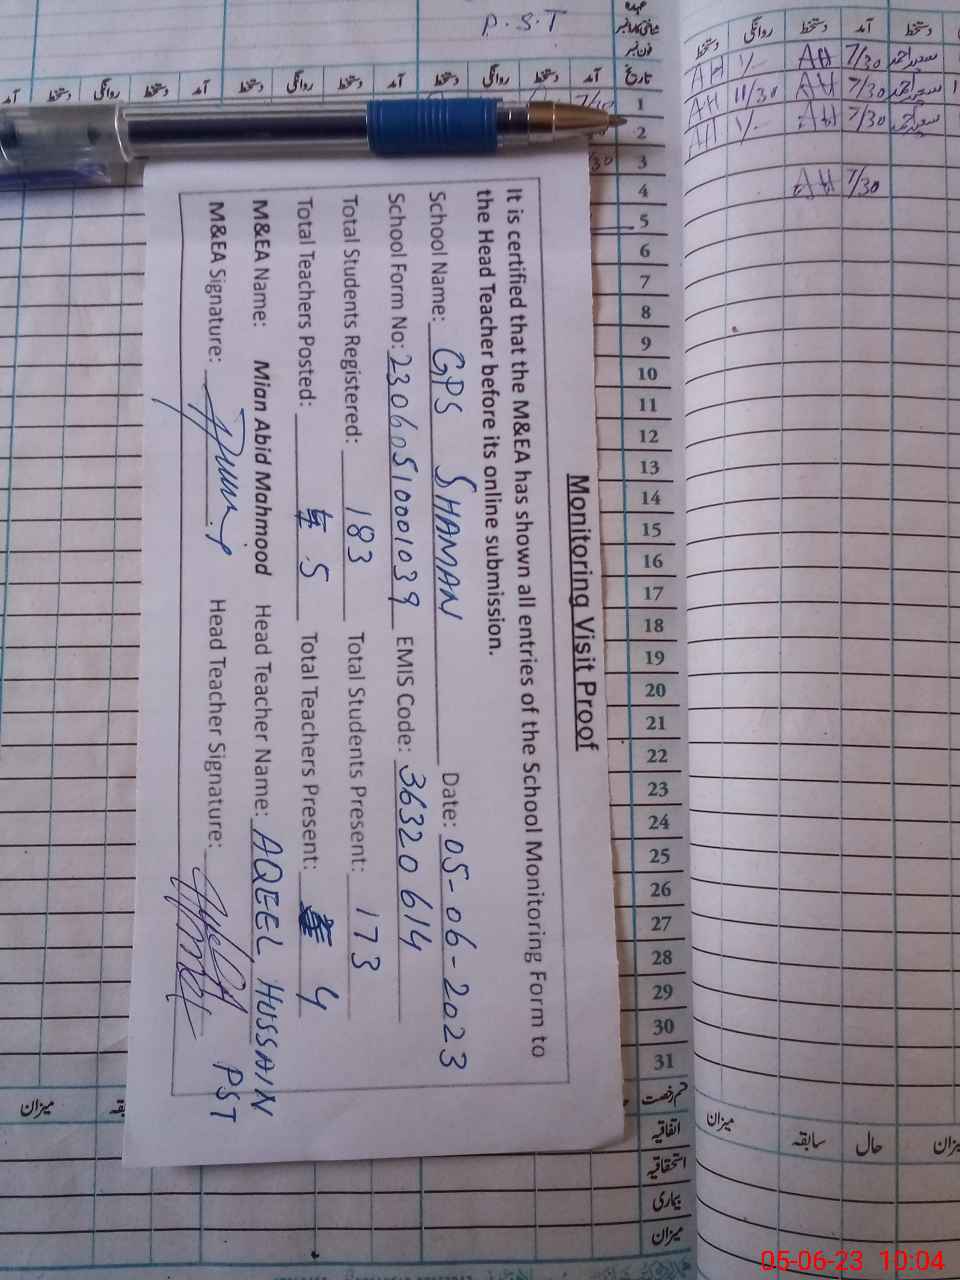 P.S.T
Monitoring Visit Proof
It is certified that the M&EA has shown all entries of the School Monitoring Form to
the Head Teacher before its online submission.
School Name: GPS SHAMAN Date: 05-06-2023
School Form No: 23060510001039 EMIS Code: 36320614
Total Students Registered: 183 Total Students Present: 173
Total Teachers Posted: 5 Total Teachers Present: 4
M&EA Name: Mian Abid Mahmood Head Teacher Name: AQEEL HUSSAIN
M&EA Signature: Head Teacher Signature: PST
تاریخ
1
2
3
4
5
6
7
8
9
10
11
12
13
14
15
16
17
18
19
20
21
22
23
24
25
26
27
28
29
30
31
قسم رخصت
اتفاقیہ
استحقاقیہ
بیماری
میزان
دستخط روانگی دستخط آمد دستخط
AH 1/- AH 7/30 سعید احمد
AH 11/30 AH 7/30 سعید احمد
AH 1/- AH 7/30 سعید احمد
AH 7/30
میزان سابقہ حال میزان
میزان
05-06-23 10:04